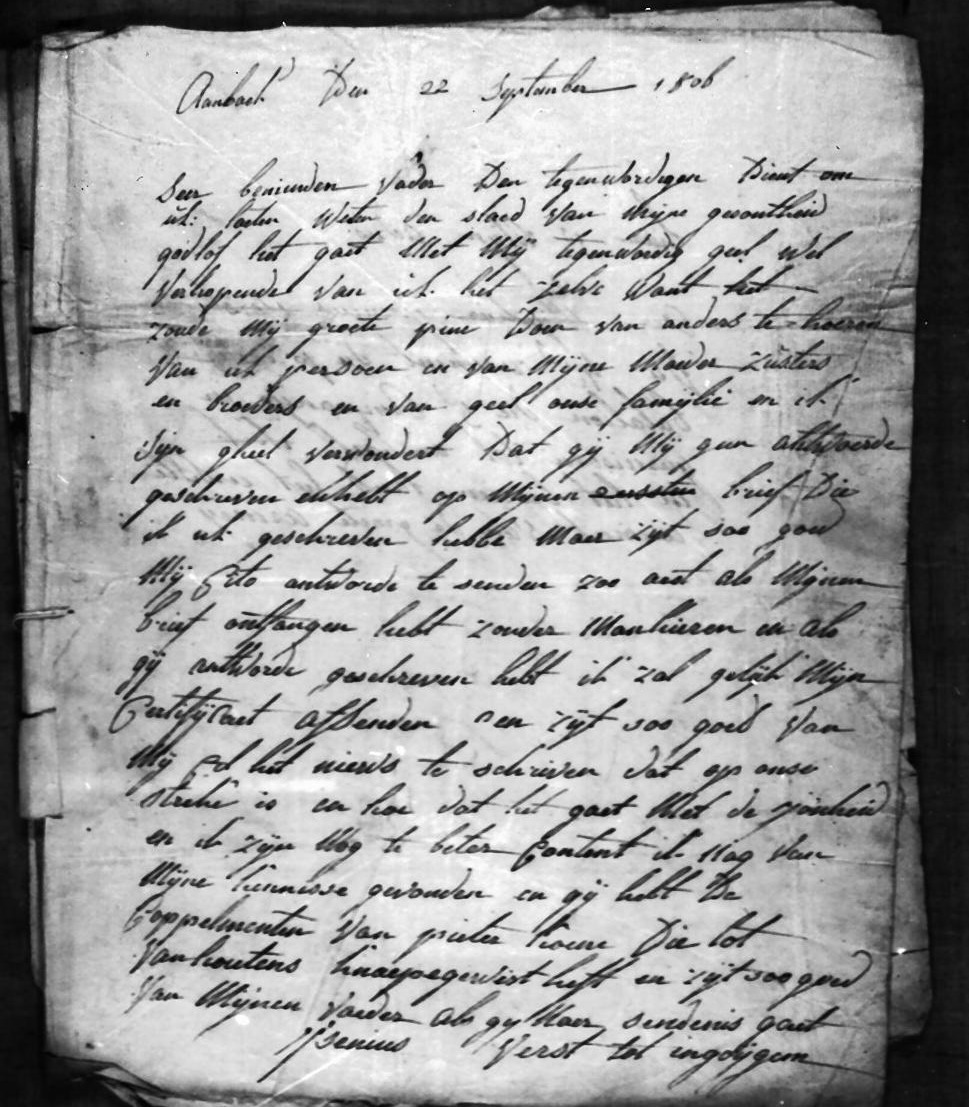 Den 22 September 1806
Seer beminden Vader Den tegenwordigen Dient om
ul: laeten Weten den staed van Mijne gesontheid
godlof het gaet Met Mij tegenwordig geel Wel
Verhopende van ul: het zelve Want het
zoude Mij groote pine Doen van anders te hooren
Van ul persoon en van Mijne Moeder zusters
en broeders en van geel onse familie en ik
Sijn gheel verwondert Dat gij Mij geen anttwoorde
geschreven enhebt op Mijnen eersten brief Die
ik ul geschreven hebbe Maer zijt soo goed
Mij Cito antworde te senden zoo aest als Mijnen
brief ontfangen hebt zonder Mankieren en als
gij antworde geschreven hebt ik zal gelijk Mijn
Certifijcaet afsenden en zijt soo goed Van
Mij het niervs te schriven dat op onse
streke is en hoe dat het gaet Met de jonkeid
en ik zijn Nog te beter Content ik Nog Van
Mijne kennisse gevonden en gij hebt De
Coppelmenten Van pieter Die tot
Vanhoutens geweest heft en zijt soo goed
Van Mijnen Vader als gij Naer gaet
Verst tot ingoijgem